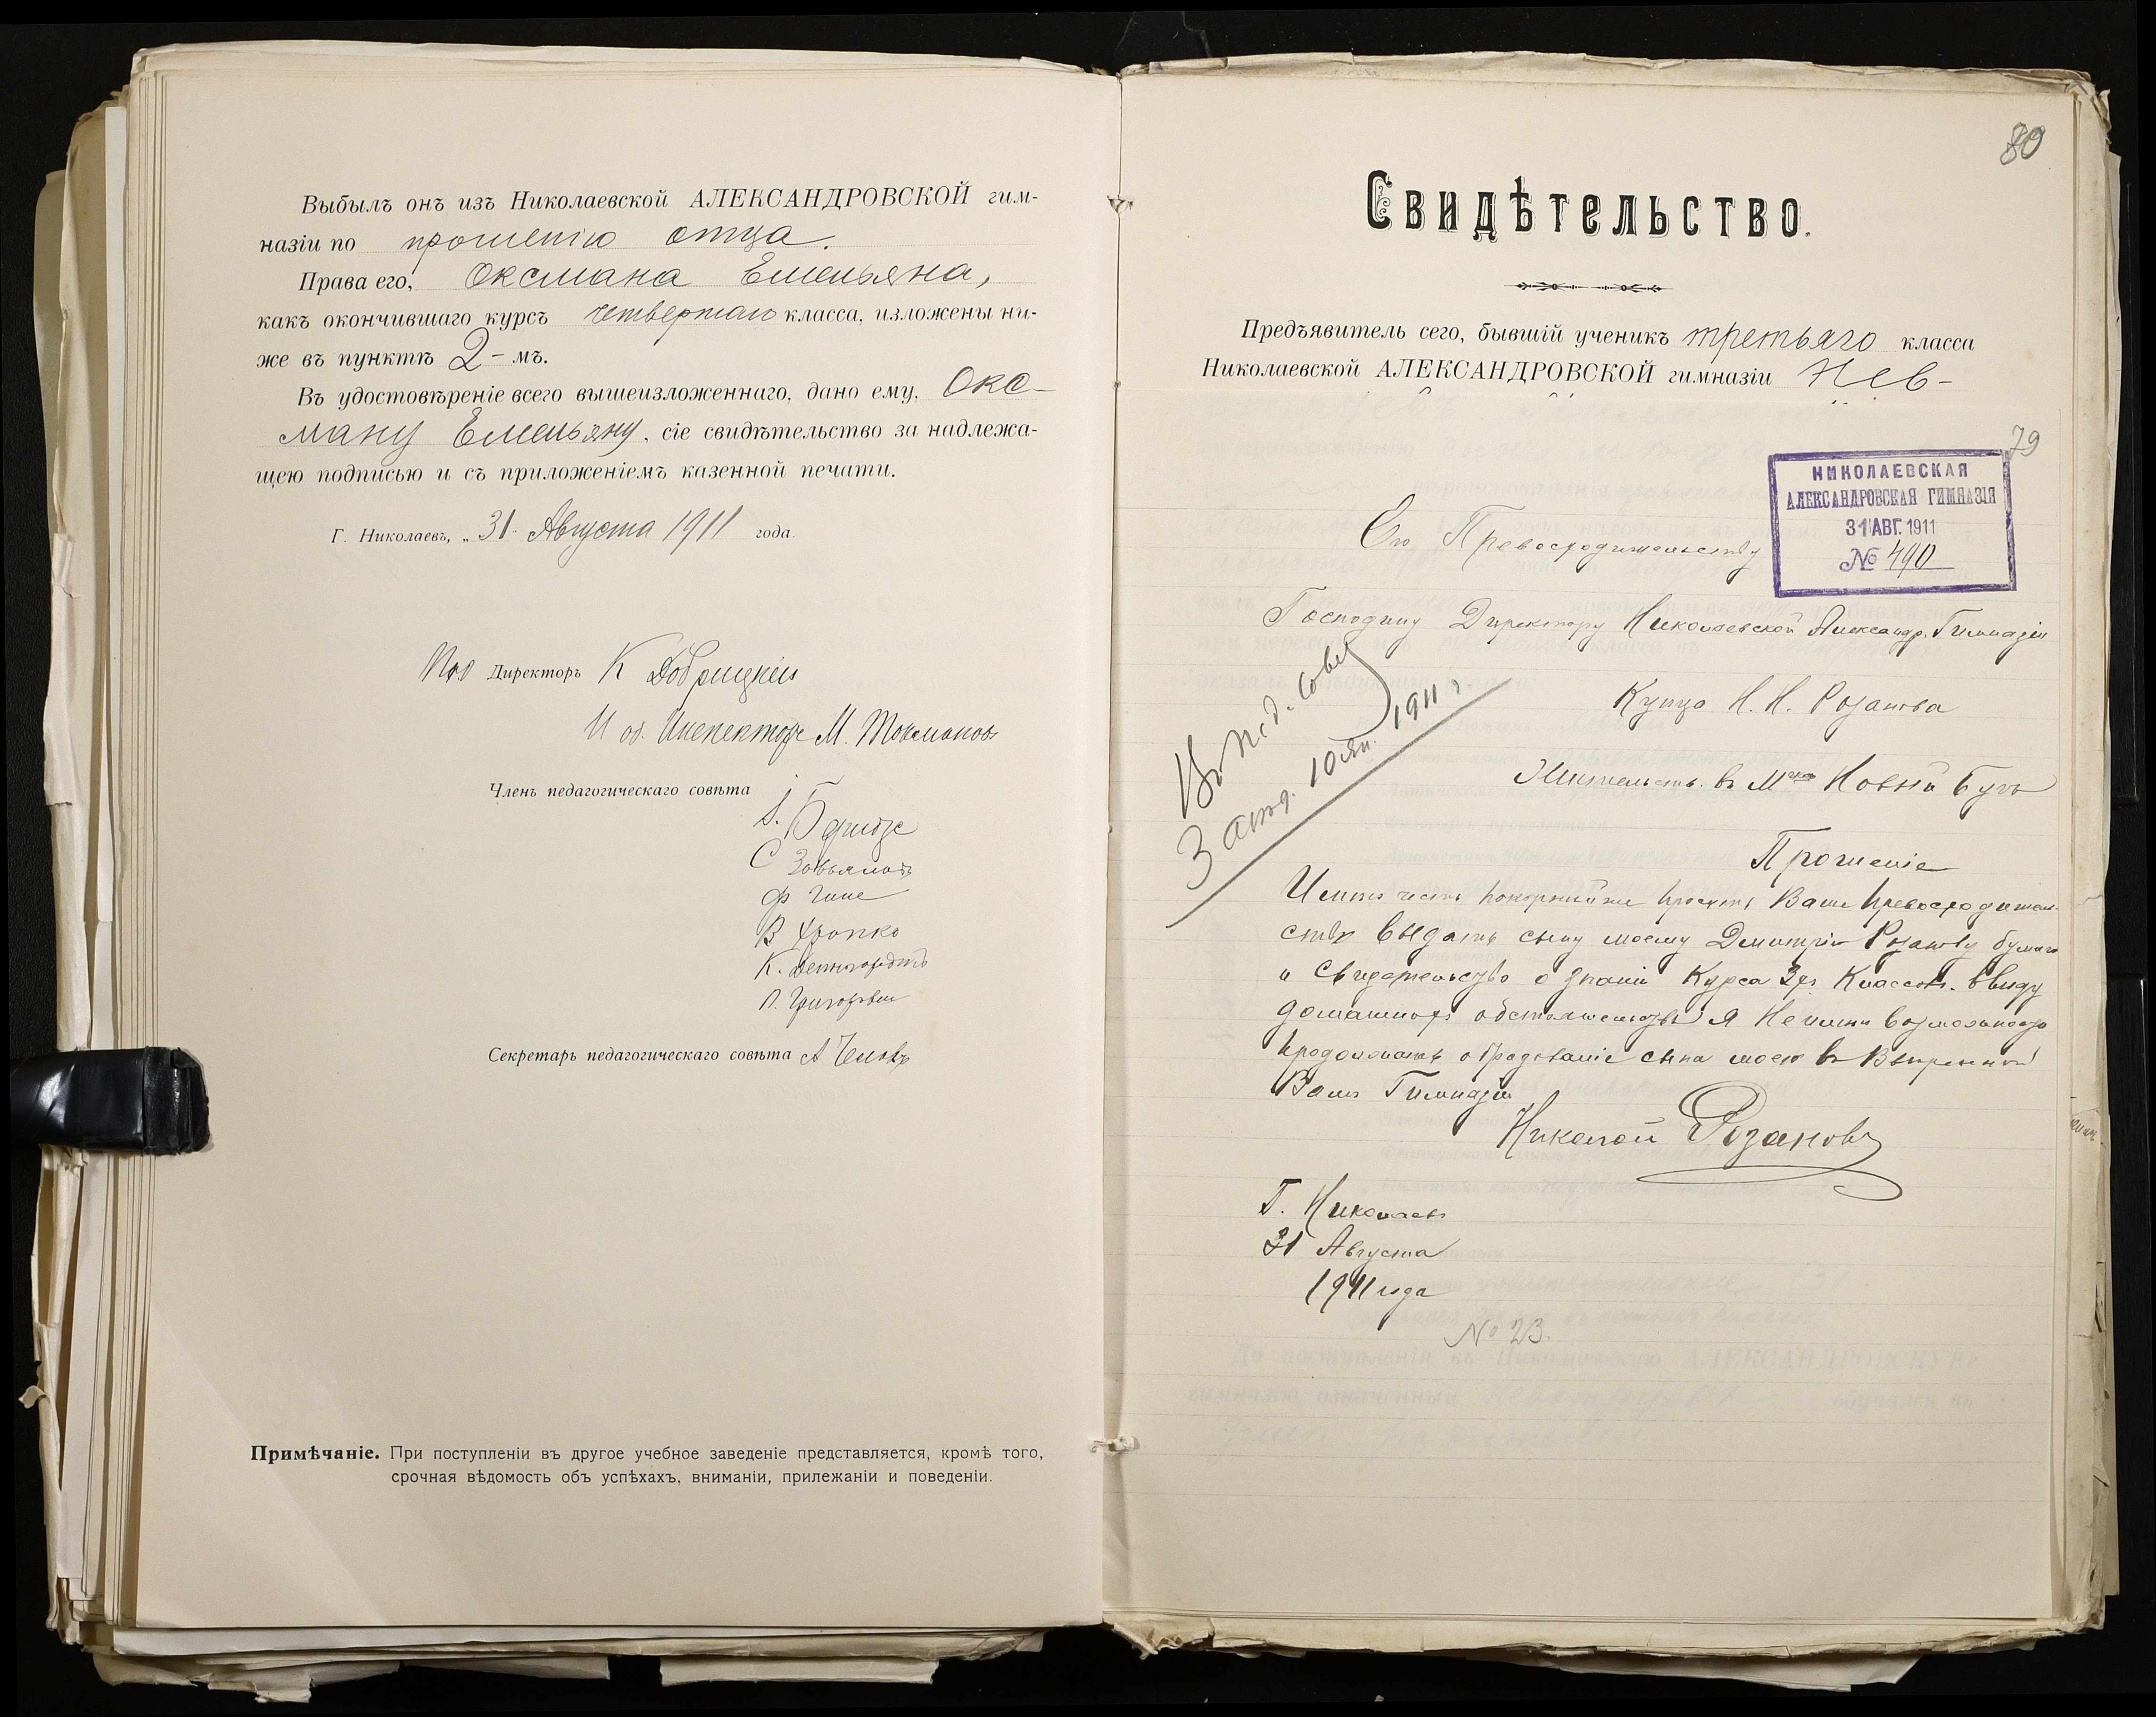 Выбылъ онъ изъ Николаевской АЛЕКСАНДРОВСКОЙ гим-
назіи по прошенію отца.
Права его, Оксмана Емельяна,
какъ окончившаго курсъ четвертаго класса, изложены ни-
же въ пунктѣ 2-мъ.
Въ удостовѣреніе всего вышеизложеннаго, дано ему, Окс-
ману Емельяну, сіе свидѣтельство за надлежа-
щею подписью и съ приложеніемъ казенной печати.
Г. Николаевъ, „ 31 Августа 1911 года.
Директоръ К
И об. Инспектора М.
Членъ педагогическаго совѣта
С
Ф
В
К.
Секретарь педагогическаго совѣта А
Примѣчаніе. При поступленіи въ другое учебное заведеніе представляется, кромѣ того,
срочная вѣдомость объ успѣхахъ, вниманіи, прилежаніи и поведеніи.
80
Свидѣтельство.
Предъявитель сего, бывшій ученикъ третьяго класса
Николаевской АЛЕКСАНДРОВСКОЙ гимназіи Нев-
79
НИКОЛАЕВСКАЯ
АЛЕКСАНДРОВСКАЯ ГИМНАЗІЯ
31 АВГ. 1911
№ 490
Его Превосходительству
Господину Директору Николаевской Александр. Гимназіи
Купца Н. Н. Розанова
Жительств. в Новый Бугъ
1911 г
Прошеніе
Имѣю честь покорнѣйше просить Ваше Превосходитель-
ство выдать сыну моему Дмитрію Розанову бумаги
и Свидетельство о знаніи Курса 3х Классовъ. Ввиду
домашнихъ обстоятельствъ Я Неимѣю возможности
продолжать образованіе сына моего въ Ввѣренной
Вамъ Гимназіи
Николай Розановъ
Г. Николаевъ
31 Августа
1911 года
№ 23.